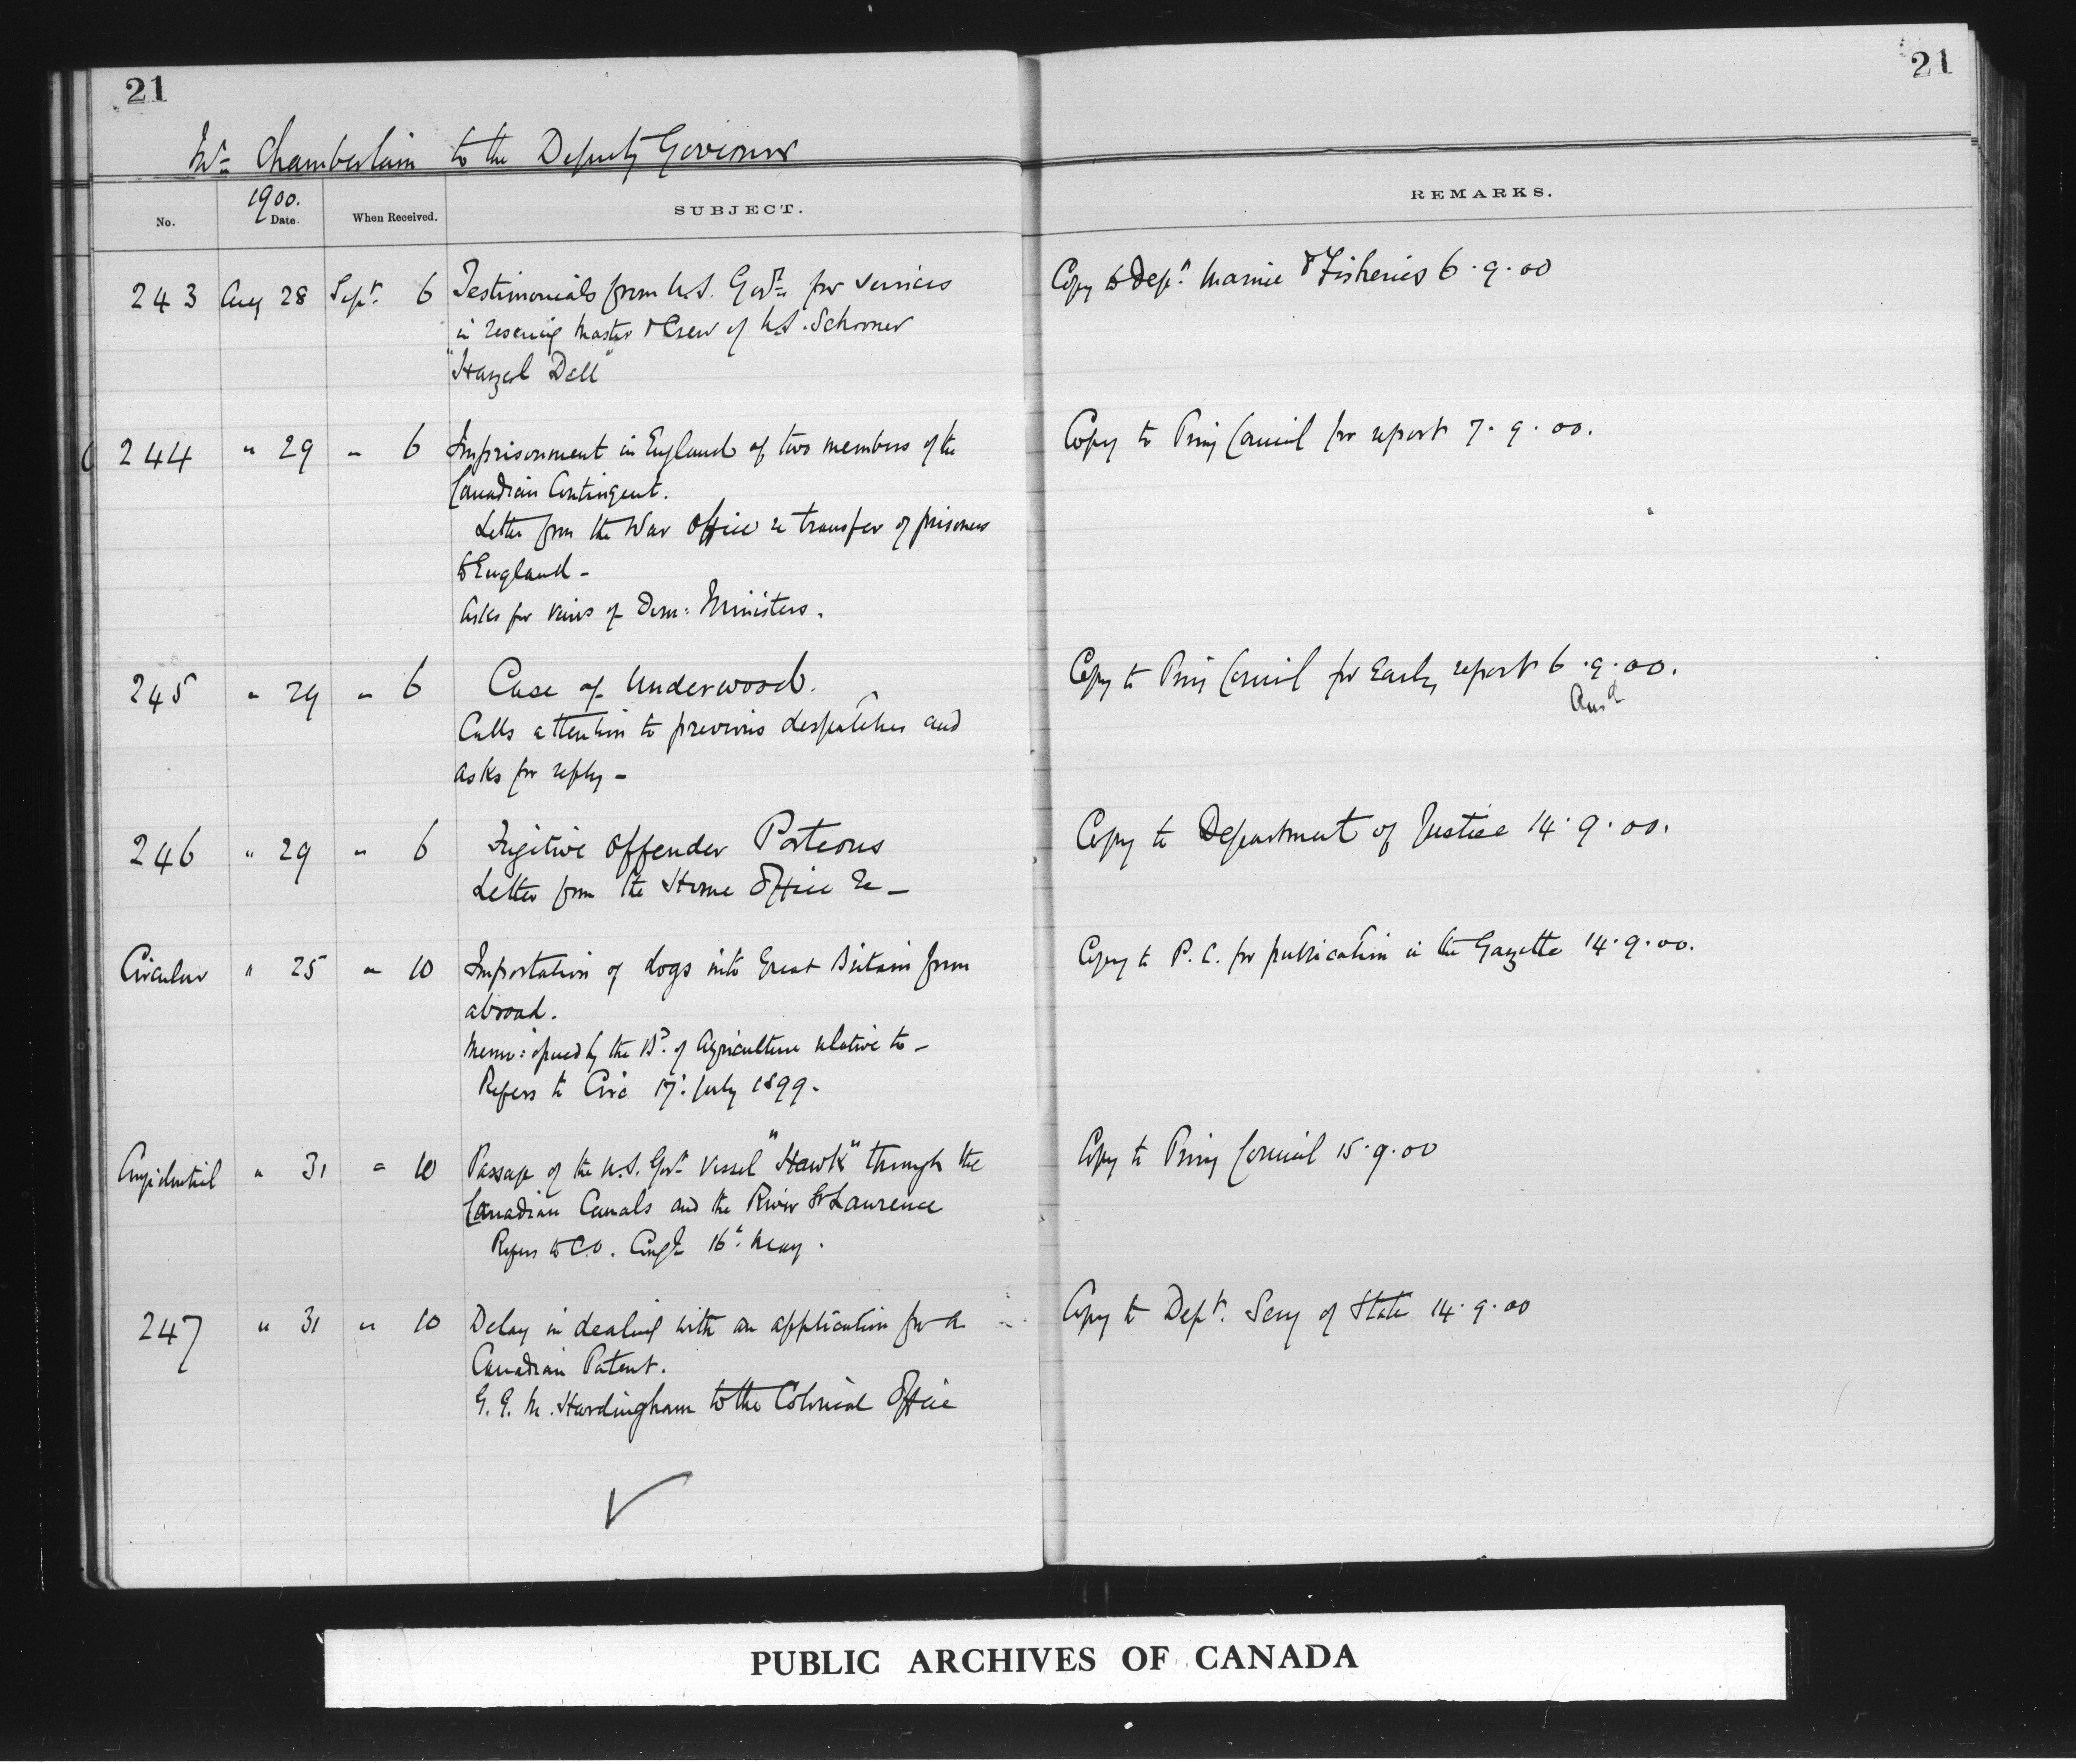 21
21
Mr. Chamberlain to the Deputy Governor
No.
1900.
Date.
When Received.
SUBJECT.
REMARKS.
243 Aug 28 Sept. 6 Testimonials from U.S. Govt. for services
in rescuing Master & Crew of U.S. Schooner
"Hazel Dell"
Copy to Dept. Marine & Fisheries 6.9.00
244 " 29 " 6 Imprisonment in England of two members of the
Canadian Contingent.
Letter from the War Office re transfer of prisoners
to England -
Asks for views of Dom: Ministers.
Copy to Privy Council for report 7.9.00.
245 " 29 " 6 Case of Underwood.
Calls attention to previous despatches and
asks for reply -
Copy to Privy Council for Early report 6.9.00.
Ansd
246 " 29 " 6 Fugitive Offender Porteous
Letter from the Home Office re -
Copy to Department of Justice 14.9.00.
Circular " 25 " 10 Importation of dogs into Great Britain from
abroad.
Memo: issued by the Bd. of Agriculture relative to -
Refers to Circ 17: July 1899.
Copy to P.C. for publication in the Gazette 14.9.00.
Confidential " 31 " 10 Passage of the U.S. Govt. vessel "Hawk" through the
Canadian Canals and the River St Lawrence
Refers to C.O. Confl 16: May.
Copy to Privy Council 15.9.00
247 " 31 " 10 Delay in dealing with an application for a
Canadian Patent.
G. G. M. Hardingham to the Colonial Office
Copy to Dept. Secy of State 14.9.00
PUBLIC ARCHIVES OF CANADA